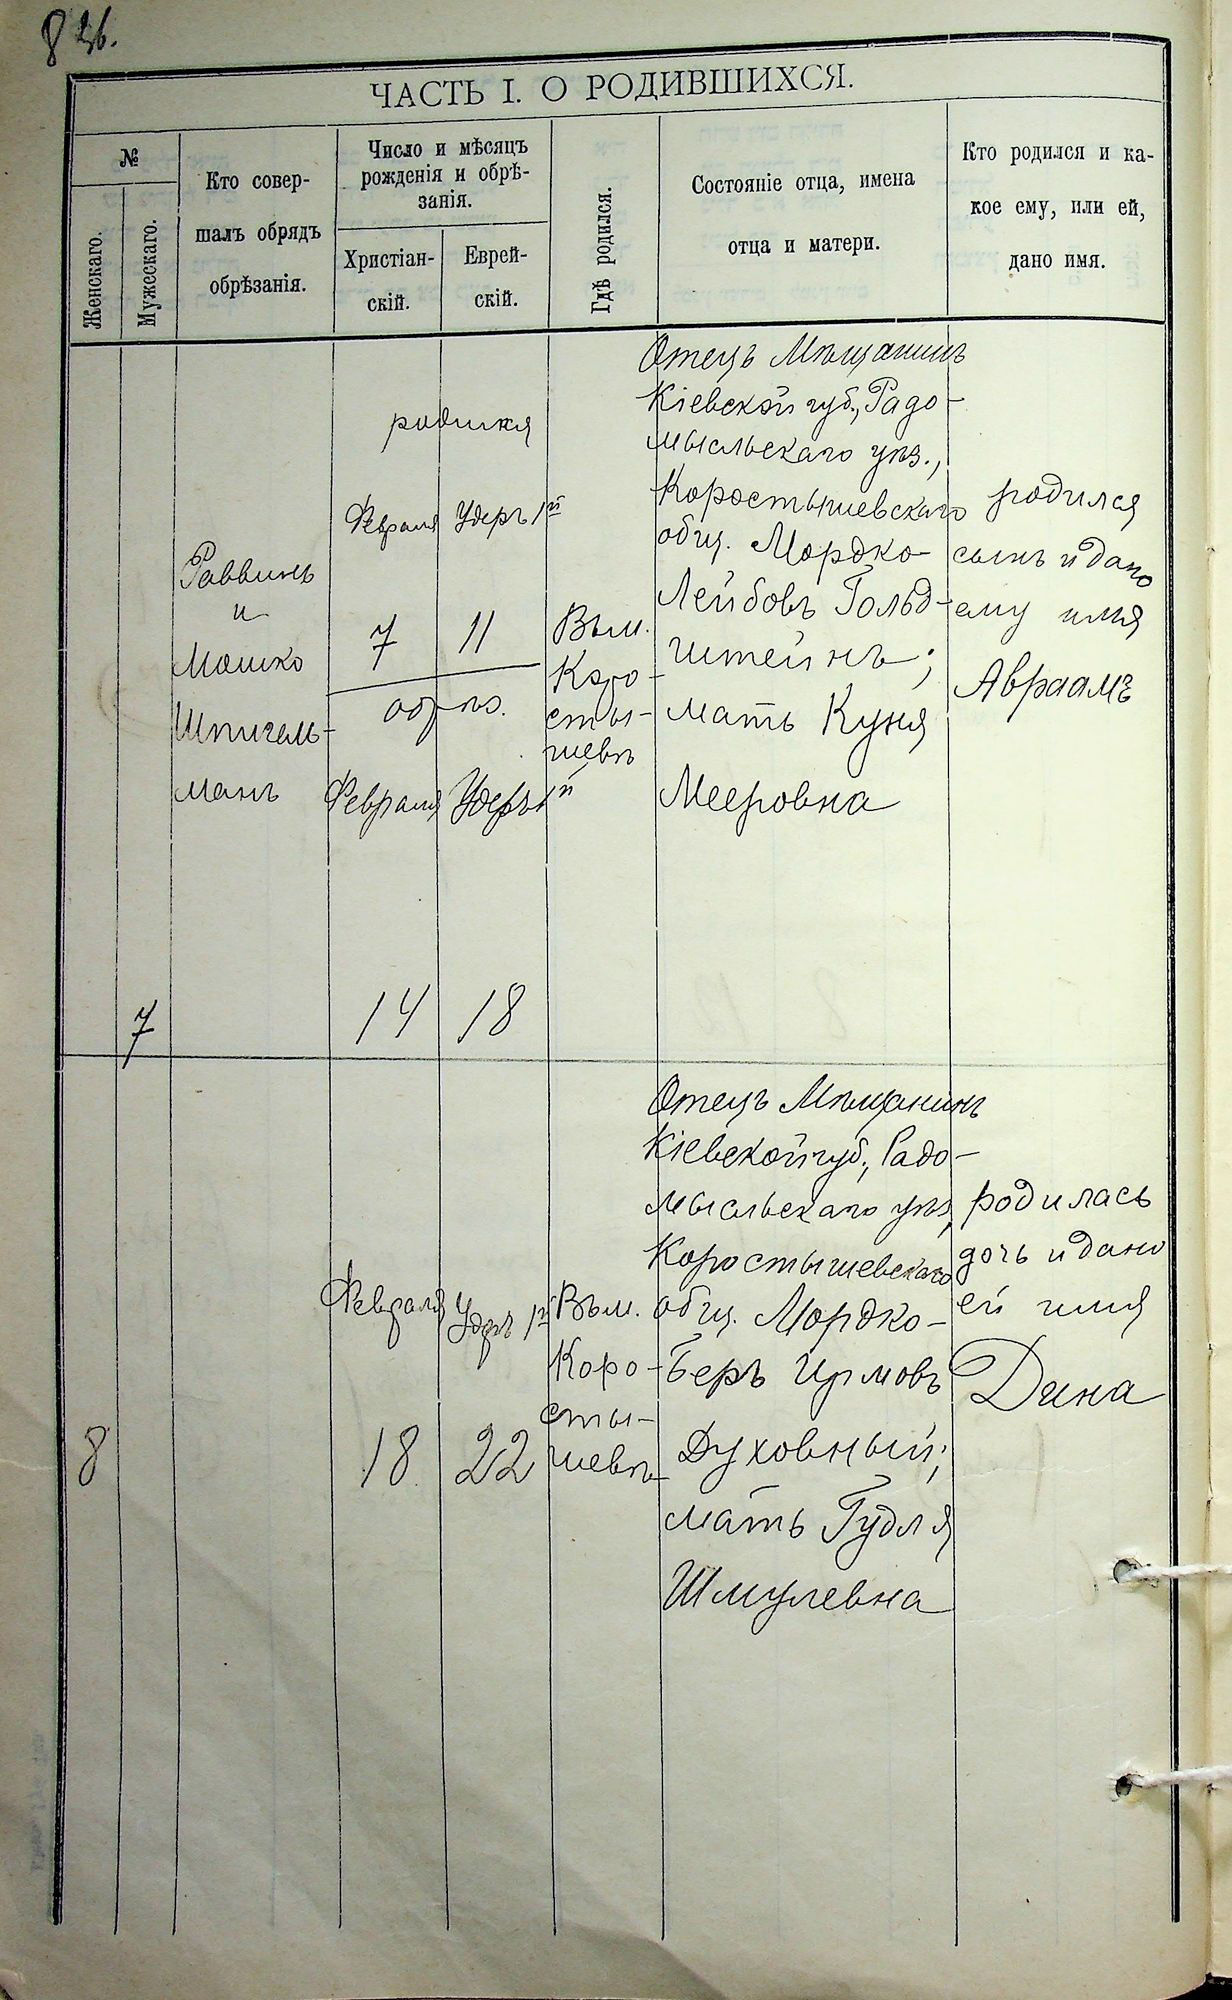 ЧАСТЬ I. О РОДИВШИХСЯ.
№
Женскаго.
Мужескаго.
Кто совер-
шалъ обрядъ
обрѣзанія.
Число и мѣсяцъ
рожденія и обрѣ-
занія.
Христіан-
скій.
Еврей-
скій.
Гдѣ родился.
Состояніе отца, имена
отца и матери.
Кто родился и ка-
кое ему, или ей,
дано имя.
7
Раввинъ
и
Мошко
Шпигель-
манъ
Февраля
7
11
обрѣз.
Февраля
14
18
Въ м.
Коро-
сты-
шевѣ
Отецъ Мѣщанинъ
Кіевской губ., Радо-
мысльскаго уѣз.,
Коростышевскаго
общ. Мордко-
Лейбовъ Гольд-
штейнъ;
мать Куня
Мееровна
родился
сынъ и дано
ему имя
Авраамъ
8
Февраля
18
22
Въ м.
Коро-
сты-
шевѣ
Отецъ Мѣщанинъ
Кіевской губ., Радо-
мысльскаго уѣз,
Коростышевскаго
общ. Мордко-
Беръ
Духовный;
мать Гудля
Шмулевна
родилась
дочь и дано
ей имя
Дина